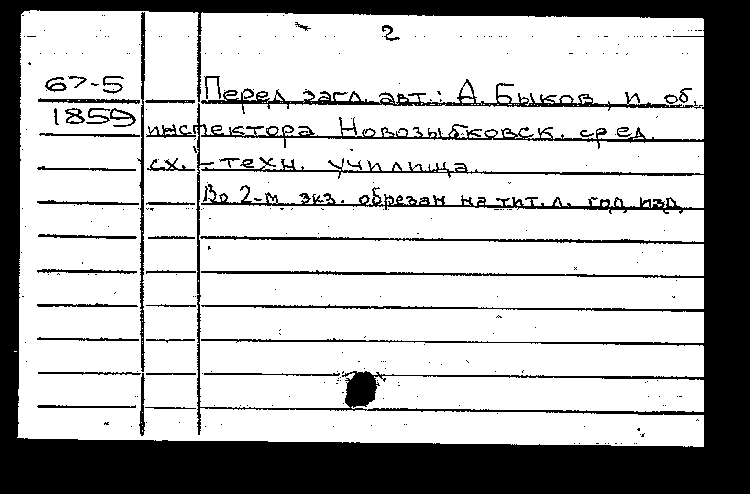 2
67-5 Перед загл. авт.: А. Быков, и. об.
1859 инспектора Новозыбковск. сред.
сх.-техн. училища.
Во 2-м экз. обрезан на тит. л. год изд.